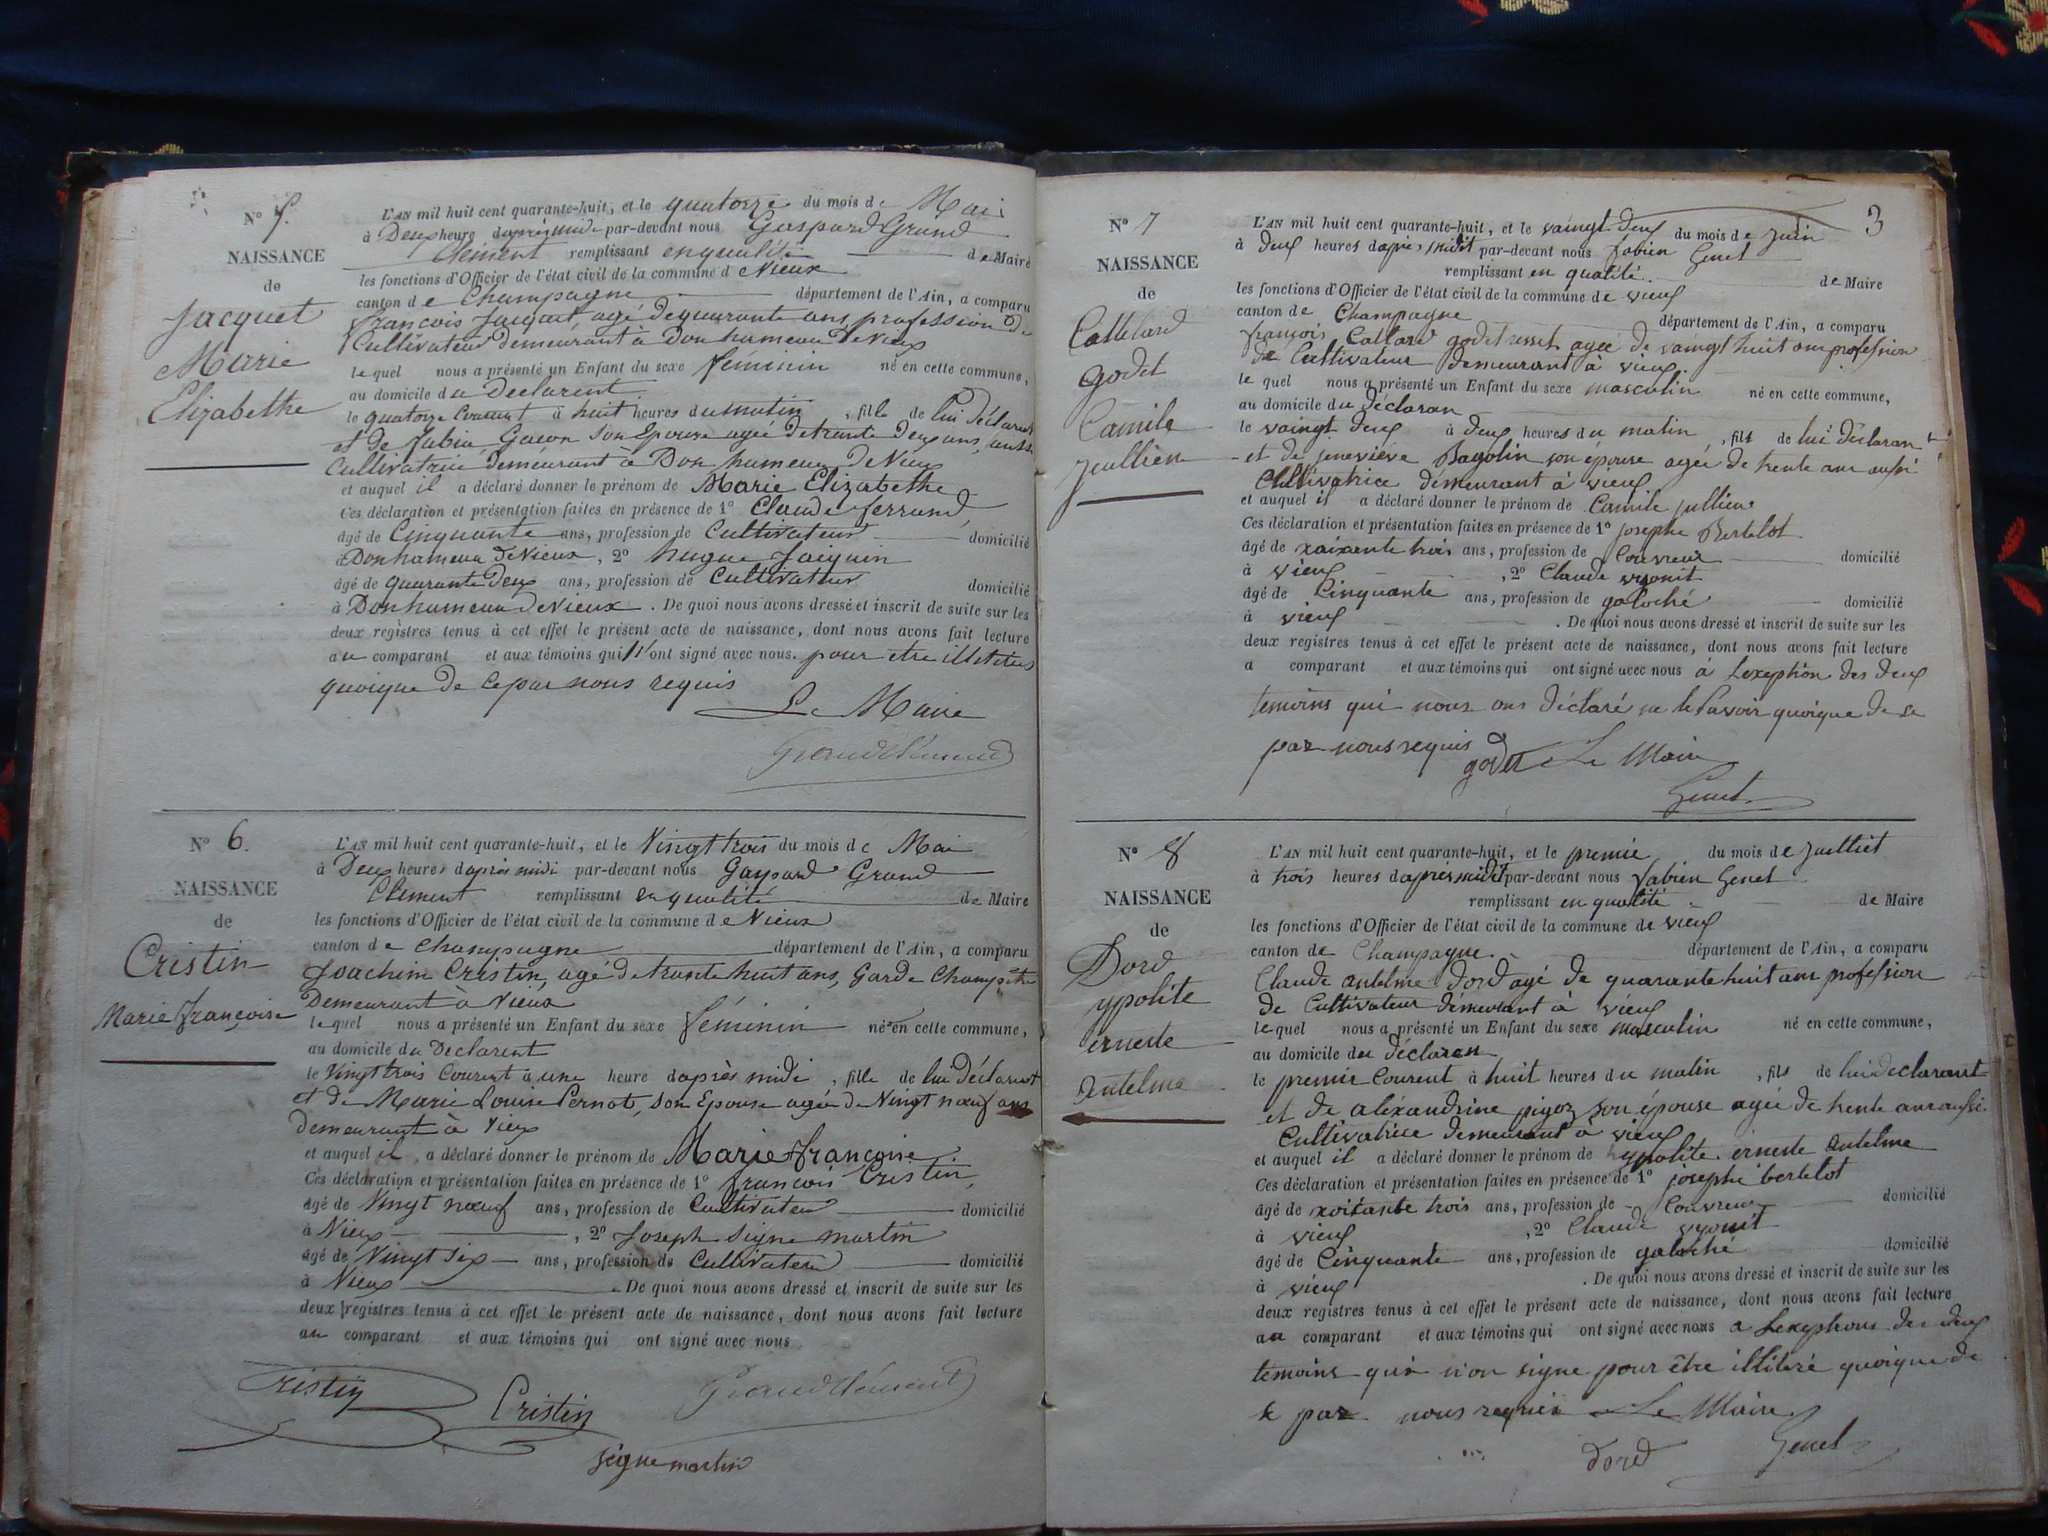 N° 5.
NAISSANCE
de
Jacquet
Marie
Elizabethe
L'AN mil huit cent quarante-huit, et le quatorze du mois de Mai
à Deux heure daprès midi par-devant nous Gaspard Grand
Clément remplissant en qualité de Maire
les fonctions d'Officier de l'état civil de la commune de Vieux
canton de Champagne département de l'Ain, a comparu
francois Jacquet, agé de quarante ans, profession de
Cultivateur demeurant à Don hameau de Vieux
le quel nous a présenté un Enfant du sexe féminin né en cette commune,
au domicile du Declarent
le quatorze Courant à huit heures du matin, fille de lui déclarent
et de fabia Gacon son Epouse agée de trante deux ans, aussi
Cultivatrice demeurant à Don hameau de Vieux
et auquel il a déclaré donner le prénom de Marie Elizabethe
Ces déclaration et présentation faites en présence de 1° Claude ferrand,
âgé de Cinquante ans, profession de Cultivateur domicilié
à Don hameau de Vieux, 2° hugue Jaiquin
âgé de quarante Deux ans, profession de Cultivateur domicilié
à Don hameau de Vieux. De quoi nous avons dressé et inscrit de suite sur les
deux registres tenus à cet effet le présent acte de naissance, dont nous avons fait lecture
au comparant et aux témoins qui n'ont signé avec nous. pour etre illetitus
quoique de ce par nous requis
Le Maire
Grand Clément
N° 6.
NAISSANCE
de
Cristin
Marie françoise
L'AN mil huit cent quarante-huit, et le Vingt trois du mois de Mai
à Deux heures d'après midi par-devant nous Gaspard Grand
Clement remplissant en qualité de Maire
les fonctions d'Officier de l'état civil de la commune de Vieux
canton de Champagne département de l'Ain, a comparu
Joachim Cristin, agé de trante huit ans, Garde Champêtre
Demeurant à Vieux
le quel nous a présenté un Enfant du sexe féminin né en cette commune,
au domicile du Declarent
le Vingt trois Courent à une heure daprès midi, fille de lui Déclarent
et de Marie Louise Pernot, son Epouse agée de Vingt nœuf ans
Demeurant à Vieux
et auquel il a déclaré donner le prénom de Marie françoise
Ces déclaration et présentation faites en présence de 1° françois Cristin,
âgé de Vingt nœuf ans, profession de Cultivateur domicilié
à Vieux, 2° Joseph Signe martin
âgé de Vingt six ans, profession de Cultivateur domicilié
à Vieux. De quoi nous avons dressé et inscrit de suite sur les
deux registres tenus à cet effet le présent acte de naissance, dont nous avons fait lecture
au comparant et aux témoins qui ont signé avec nous
Cristin Cristin Grand Clément
signe martin
3
N° 7
NAISSANCE
de
Cattelard
godet
Camile
jullien
L'AN mil huit cent quarante-huit, et le vaingt deux du mois de juin
à deux heures d'après midit par-devant nous fabien Genet
remplissant en qualité de Maire
les fonctions d'Officier de l'état civil de la commune de vieux
canton de Champagne département de l'Ain, a comparu
françois Callard godet agée de vaingt huit ans profession
de Cultivateur demeurant à vieux
le quel nous a présenté un Enfant du sexe masculin né en cette commune,
au domicile du déclaran
le vaingt deux à deux heures du matin, fils de lui déclaran
et de geneviève Bagolin son épouse agée de trente ans aussi
Cultivatrice demeurant à vieux
et auquel il a déclaré donner le prénom de Camile jullien
Ces déclaration et présentation faites en présence de 1° josephe Bertelot
âgé de xoixente trois ans, profession de Couvreur domicilié
à vieux, 2° Claude vyonit
âgé de Cinquante ans, profession de galoché domicilié
à vieux. De quoi nous avons dressé et inscrit de suite sur les
deux registres tenus à cet effet le présent acte de naissance, dont nous avons fait lecture
a comparant et aux témoins qui ont signé avec nous à Lexephion des deux
temoins qui nous ons déclaré ne le savoir quoique de se
par nous requis
godet Le Maire
Genet
N° 8
NAISSANCE
de
Dord
ypolite
erneste
antelme
L'AN mil huit cent quarante-huit, et le premie du mois de juilliet
à trois heures d'après midit par-devant nous fabien Genet
remplissant en qualité de Maire
les fonctions d'Officier de l'état civil de la commune de vieux
canton de Champagne département de l'Ain, a comparu
Claude antelme dord agé de quarante huit ans profession
de Cultivateur démeurant à vieux
le quel nous a présenté un Enfant du sexe masculin né en cette commune,
au domicile du déclaran
le premie Courent à huit heures du matin, fils de lui declarant
et de aléxandrine pigoz son épouse agée de trente ans aussi
Cultivatrice demeurant à vieux
et auquel il a déclaré donner le prénom de hypolite erneste antelme
Ces déclaration et présentation faites en présence de 1° josephe bertelot
âgé de xoixante trois ans, profession de Couvreur domicilié
à vieux, 2° Claude vyonit
âgé de Cinquante ans, profession de galoché domicilié
à vieux. De quoi nous avons dressé et inscrit de suite sur les
deux registres tenus à cet effet le présent acte de naissance, dont nous avons fait lecture
au comparant et aux témoins qui ont signé avec nous a Lexephions des deux
temoins qui n'on signe pour être illiteré quoique de
se par nous requis Le Maire
dord Genet